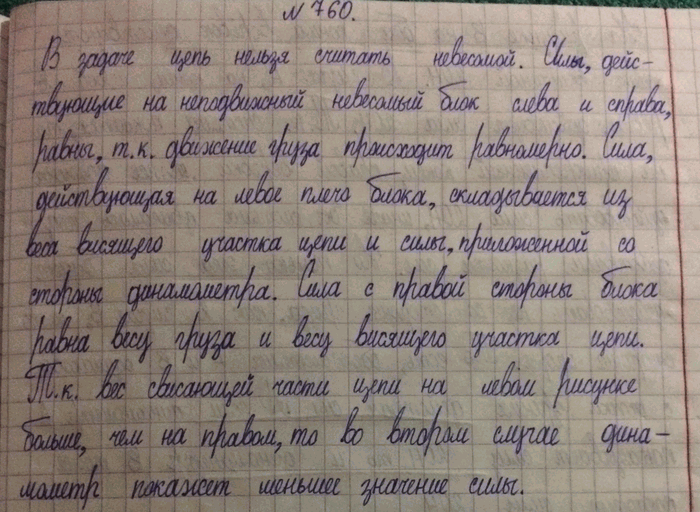 № 760.
В задаче цепь нельзя считать невесомой. Силы, дейс-
твующие на неподвижный невесомый блок слева и справа,
равны, т.к. движение груза происходит равномерно. Сила,
действующая на левое плечо блока, складывается из
веса висящего участка цепи и силы, приложенной со
стороны динамометра. Сила с правой стороны блока
равна весу груза и весу висящего участка цепи.
Т.к. вес свисающей части цепи на левом рисунке
больше, чем на правом, то во втором случае дина-
мометр покажет меньшее значение силы.